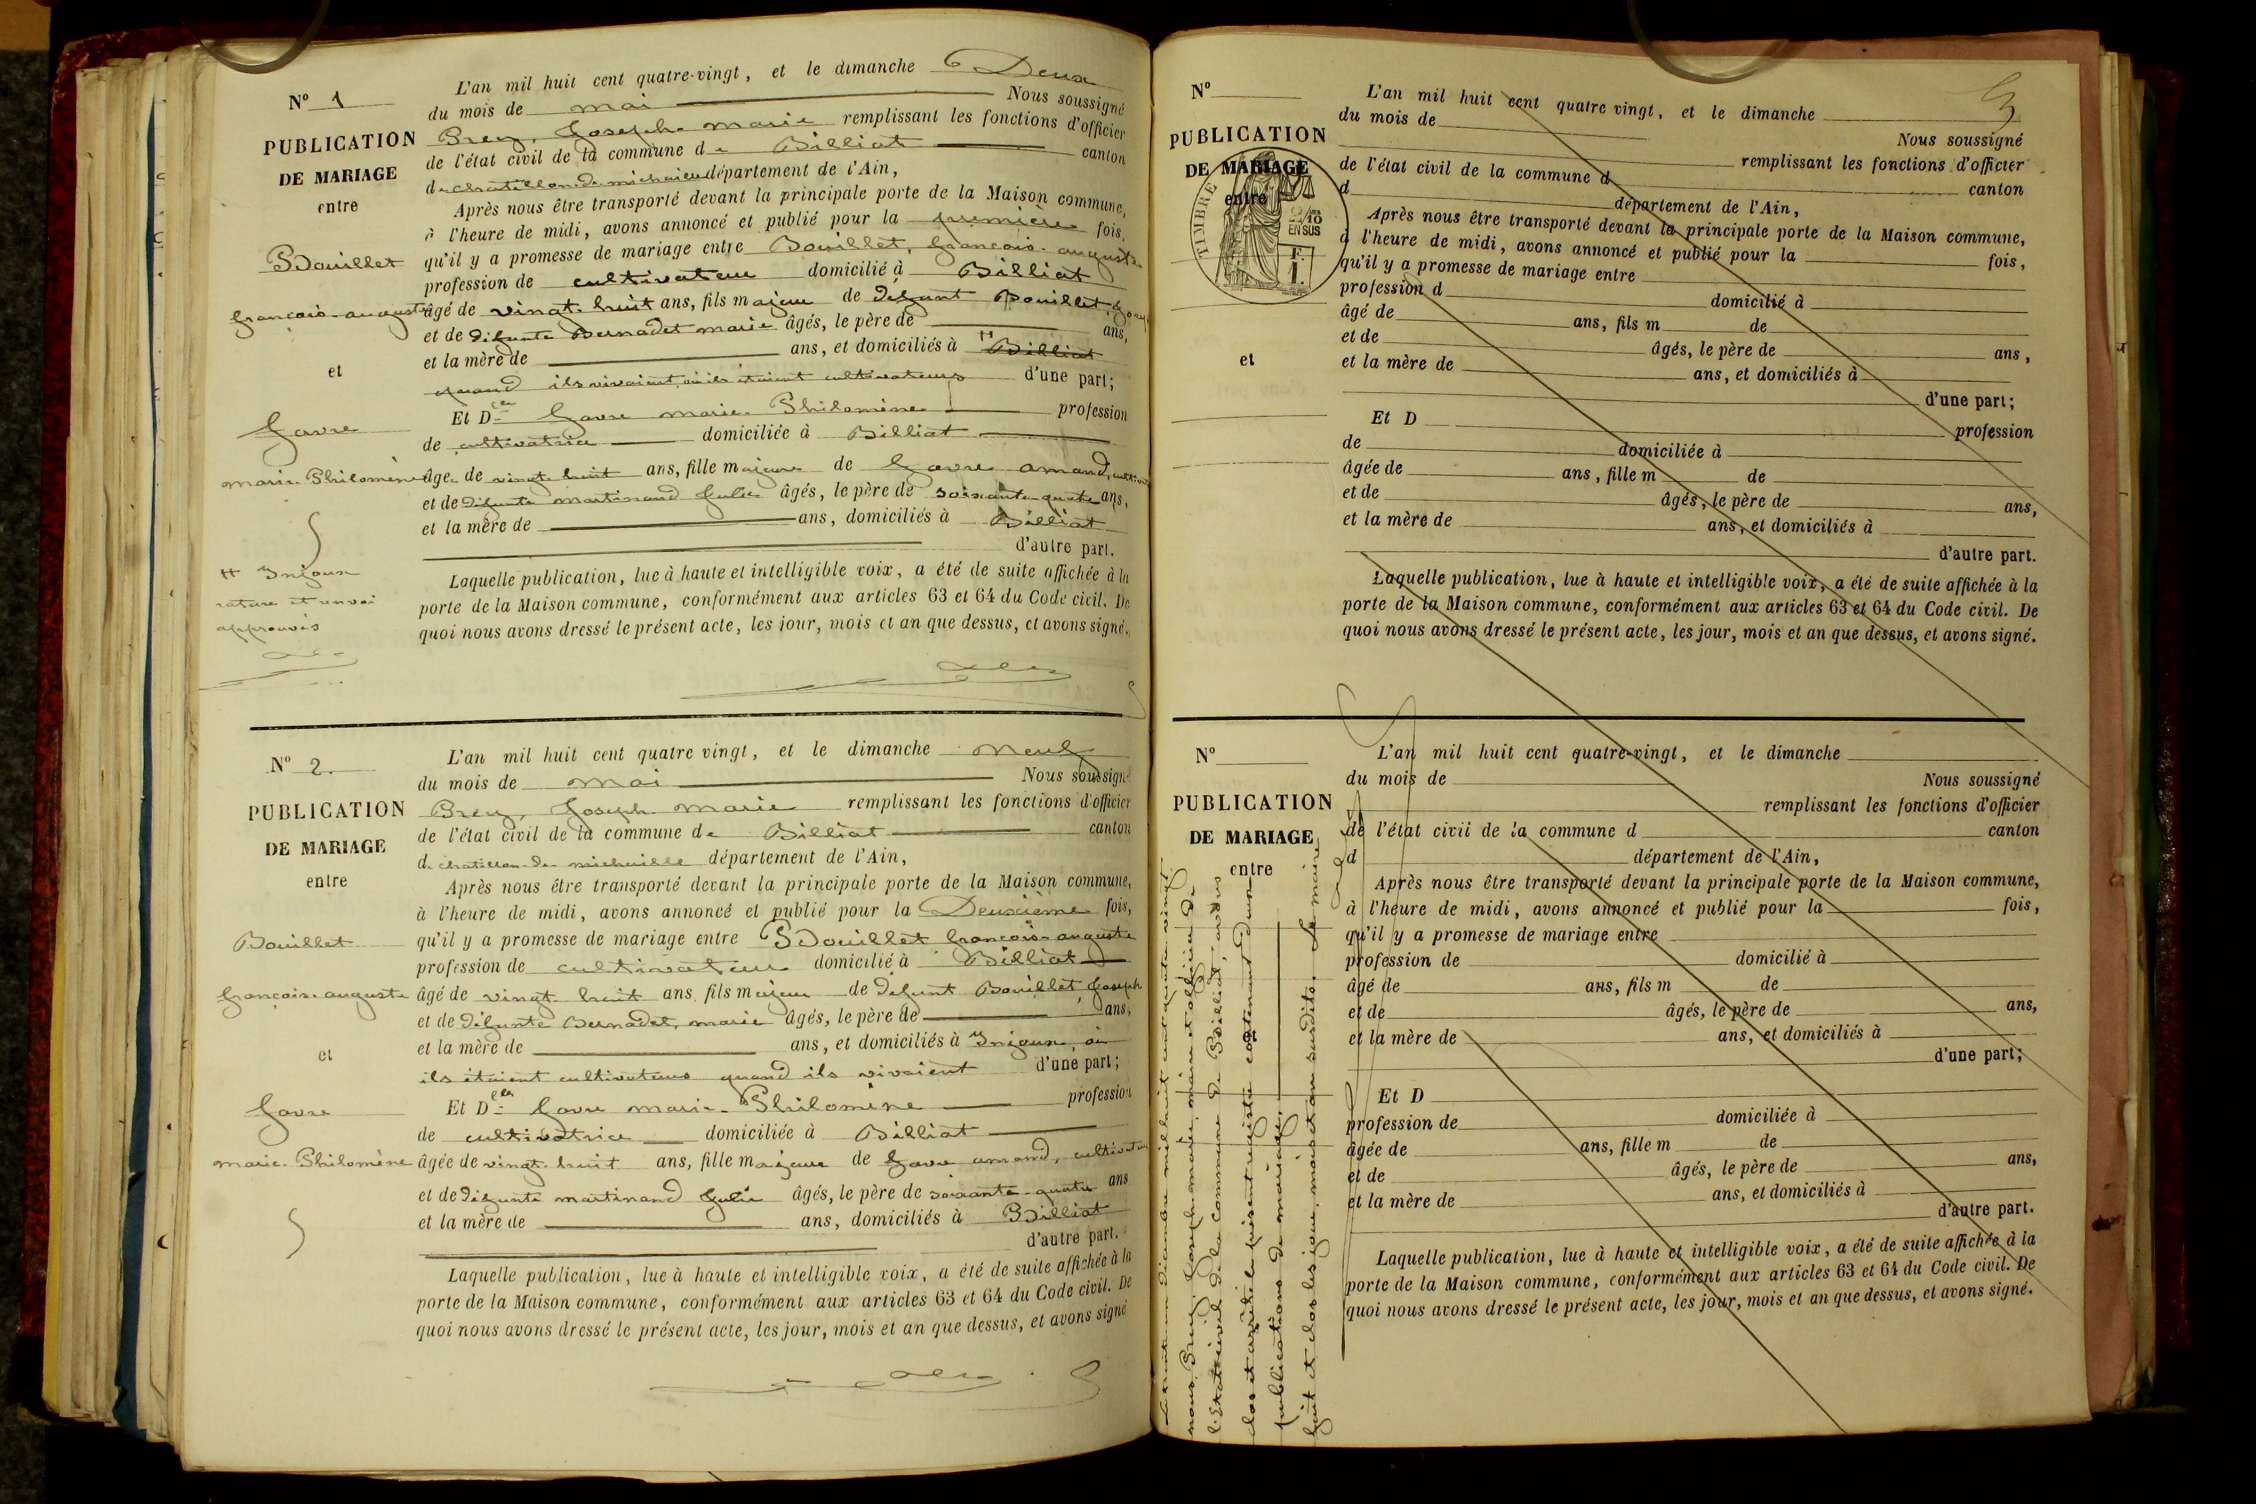 N° 1
PUBLICATION
DE MARIAGE
entre
Bouillet
françois-auguste
et
Favre
marie-Philomène
H Injoux
rature et renvoi
approuvés
L'an mil huit cent quatre-vingt, et le dimanche Deux
du mois de mai Nous soussigné
Brey, Joseph-marie remplissant les fonctions d'officier
de l'état civil de la commune de Billiat canton
de chatillon-de-michaille département de l'Ain,
Après nous être transporté devant la principale porte de la Maison commune,
à l'heure de midi, avons annoncé et publié pour la première fois,
qu'il y a promesse de mariage entre Bouillet, françois-auguste
profession de cultivateur domicilié à Billiat
âgé de vingt-huit ans, fils majeur de défunt Bouillet,
et de défunte Bernadet marie âgés, le père de ans,
et la mère de ans, et domiciliés à H Billiat
quand ils vivaient, où ils étaient cultivateurs d'une part;
Et Dlle Favre marie-Philomène profession
de cultivatrice domiciliée à Billiat
âgée de vingt-huit ans, fille majeure de Favre amand, cultivateur
et de défunte martinand Julie âgés, le père de soixante-quatre ans,
et la mère de ans, domiciliés à Billiat
d'autre part.
Laquelle publication, lue à haute et intelligible voix, a été de suite affichée à la
porte de la Maison commune, conformément aux articles 63 et 64 du Code civil. De
quoi nous avons dressé le présent acte, les jour, mois et an que dessus, et avons signé.
N° 2.
PUBLICATION
DE MARIAGE
entre
Bouillet
françois-auguste
et
Favre
marie-Philomène
L'an mil huit cent quatre vingt, et le dimanche neuf
du mois de mai Nous soussigné
Brey, Joseph marie remplissant les fonctions d'officier
de l'état civil de la commune de Billiat canton
de chatillon-de-michaille département de l'Ain,
Après nous être transporté devant la principale porte de la Maison commune,
à l'heure de midi, avons annoncé et publié pour la Deuxième fois,
qu'il y a promesse de mariage entre Bouillet françois-auguste
profession de cultivateur domicilié à Billiat
âgé de vingt-huit ans fils majeur de défunt Bouillet Joseph
et de défunte Bernadet, marie âgés, le père de ans,
et la mère de ans, et domiciliés à Injoux, où
ils étaient cultivateurs quand ils vivaient d'une part;
Et Dlle Favre marie-Philomène profession
de cultivatrice domiciliée à Billiat
âgée de vingt-huit ans, fille majeure de Favre amand, cultivateur
et de défunte martinand Julie âgés, le père de soixante-quatre ans
et la mère de ans, domiciliés à Billiat
d'autre part.
Laquelle publication, lue à haute et intelligible voix, a été de suite affichée à la
porte de la Maison commune, conformément aux articles 63 et 64 du Code civil. De
quoi nous avons dressé le présent acte, les jour, mois et an que dessus, et avons signé
3
N°
PUBLICATION
DE MARIAGE
entre
et
TIMBRE
2/10
EN SUS
F.
1.
L'an mil huit cent quatre vingt, et le dimanche
du mois de Nous soussigné
remplissant les fonctions d'officier
de l'état civil de la commune d canton
d département de l'Ain,
Après nous être transporté devant la principale porte de la Maison commune,
à l'heure de midi, avons annoncé et publié pour la fois,
qu'il y a promesse de mariage entre
profession d domicilié à
âgé de ans, fils m de
et de âgés, le père de ans,
et la mère de ans, et domiciliés à
d'une part;
Et D profession
de domiciliée à
âgée de ans, fille m de
et de âgés, le père de ans,
et la mère de ans, et domiciliés à
d'autre part.
Laquelle publication, lue à haute et intelligible voix, a été de suite affichée à la
porte de la Maison commune, conformément aux articles 63 et 64 du Code civil. De
quoi nous avons dressé le présent acte, les jour, mois et an que dessus, et avons signé.
N°
PUBLICATION
DE MARIAGE
entre
et
L'an mil huit cent quatre-vingt, et le dimanche
du mois de Nous soussigné
remplissant les fonctions d'officier
de l'état civil de la commune d canton
d département de l'Ain,
Après nous être transporté devant la principale porte de la Maison commune,
à l'heure de midi, avons annoncé et publié pour la fois,
qu'il y a promesse de mariage entre
profession de domicilié à
âgé de ans, fils m de
et de âgés, le père de ans,
et la mère de ans, et domiciliés à
d'une part;
Et D
profession de domiciliée à
âgée de ans, fille m de
et de âgés, le père de ans,
et la mère de ans, et domiciliés à
d'autre part.
Laquelle publication, lue à haute et intelligible voix, a été de suite affichée à la
porte de la Maison commune, conformément aux articles 63 et 64 du Code civil. De
quoi nous avons dressé le présent acte, les jour, mois et an que dessus, et avons signé.
Le trente un Décembre mil huit cent quatre vingt
nous, Brey, Joseph-marie, maire et officier de
l'Etat civil de la commune de Billiat, avons
clos et arrêté le présent registre contenant deux
publications de mariage.
fait et clos les jour, mois et an susdits. Le maire